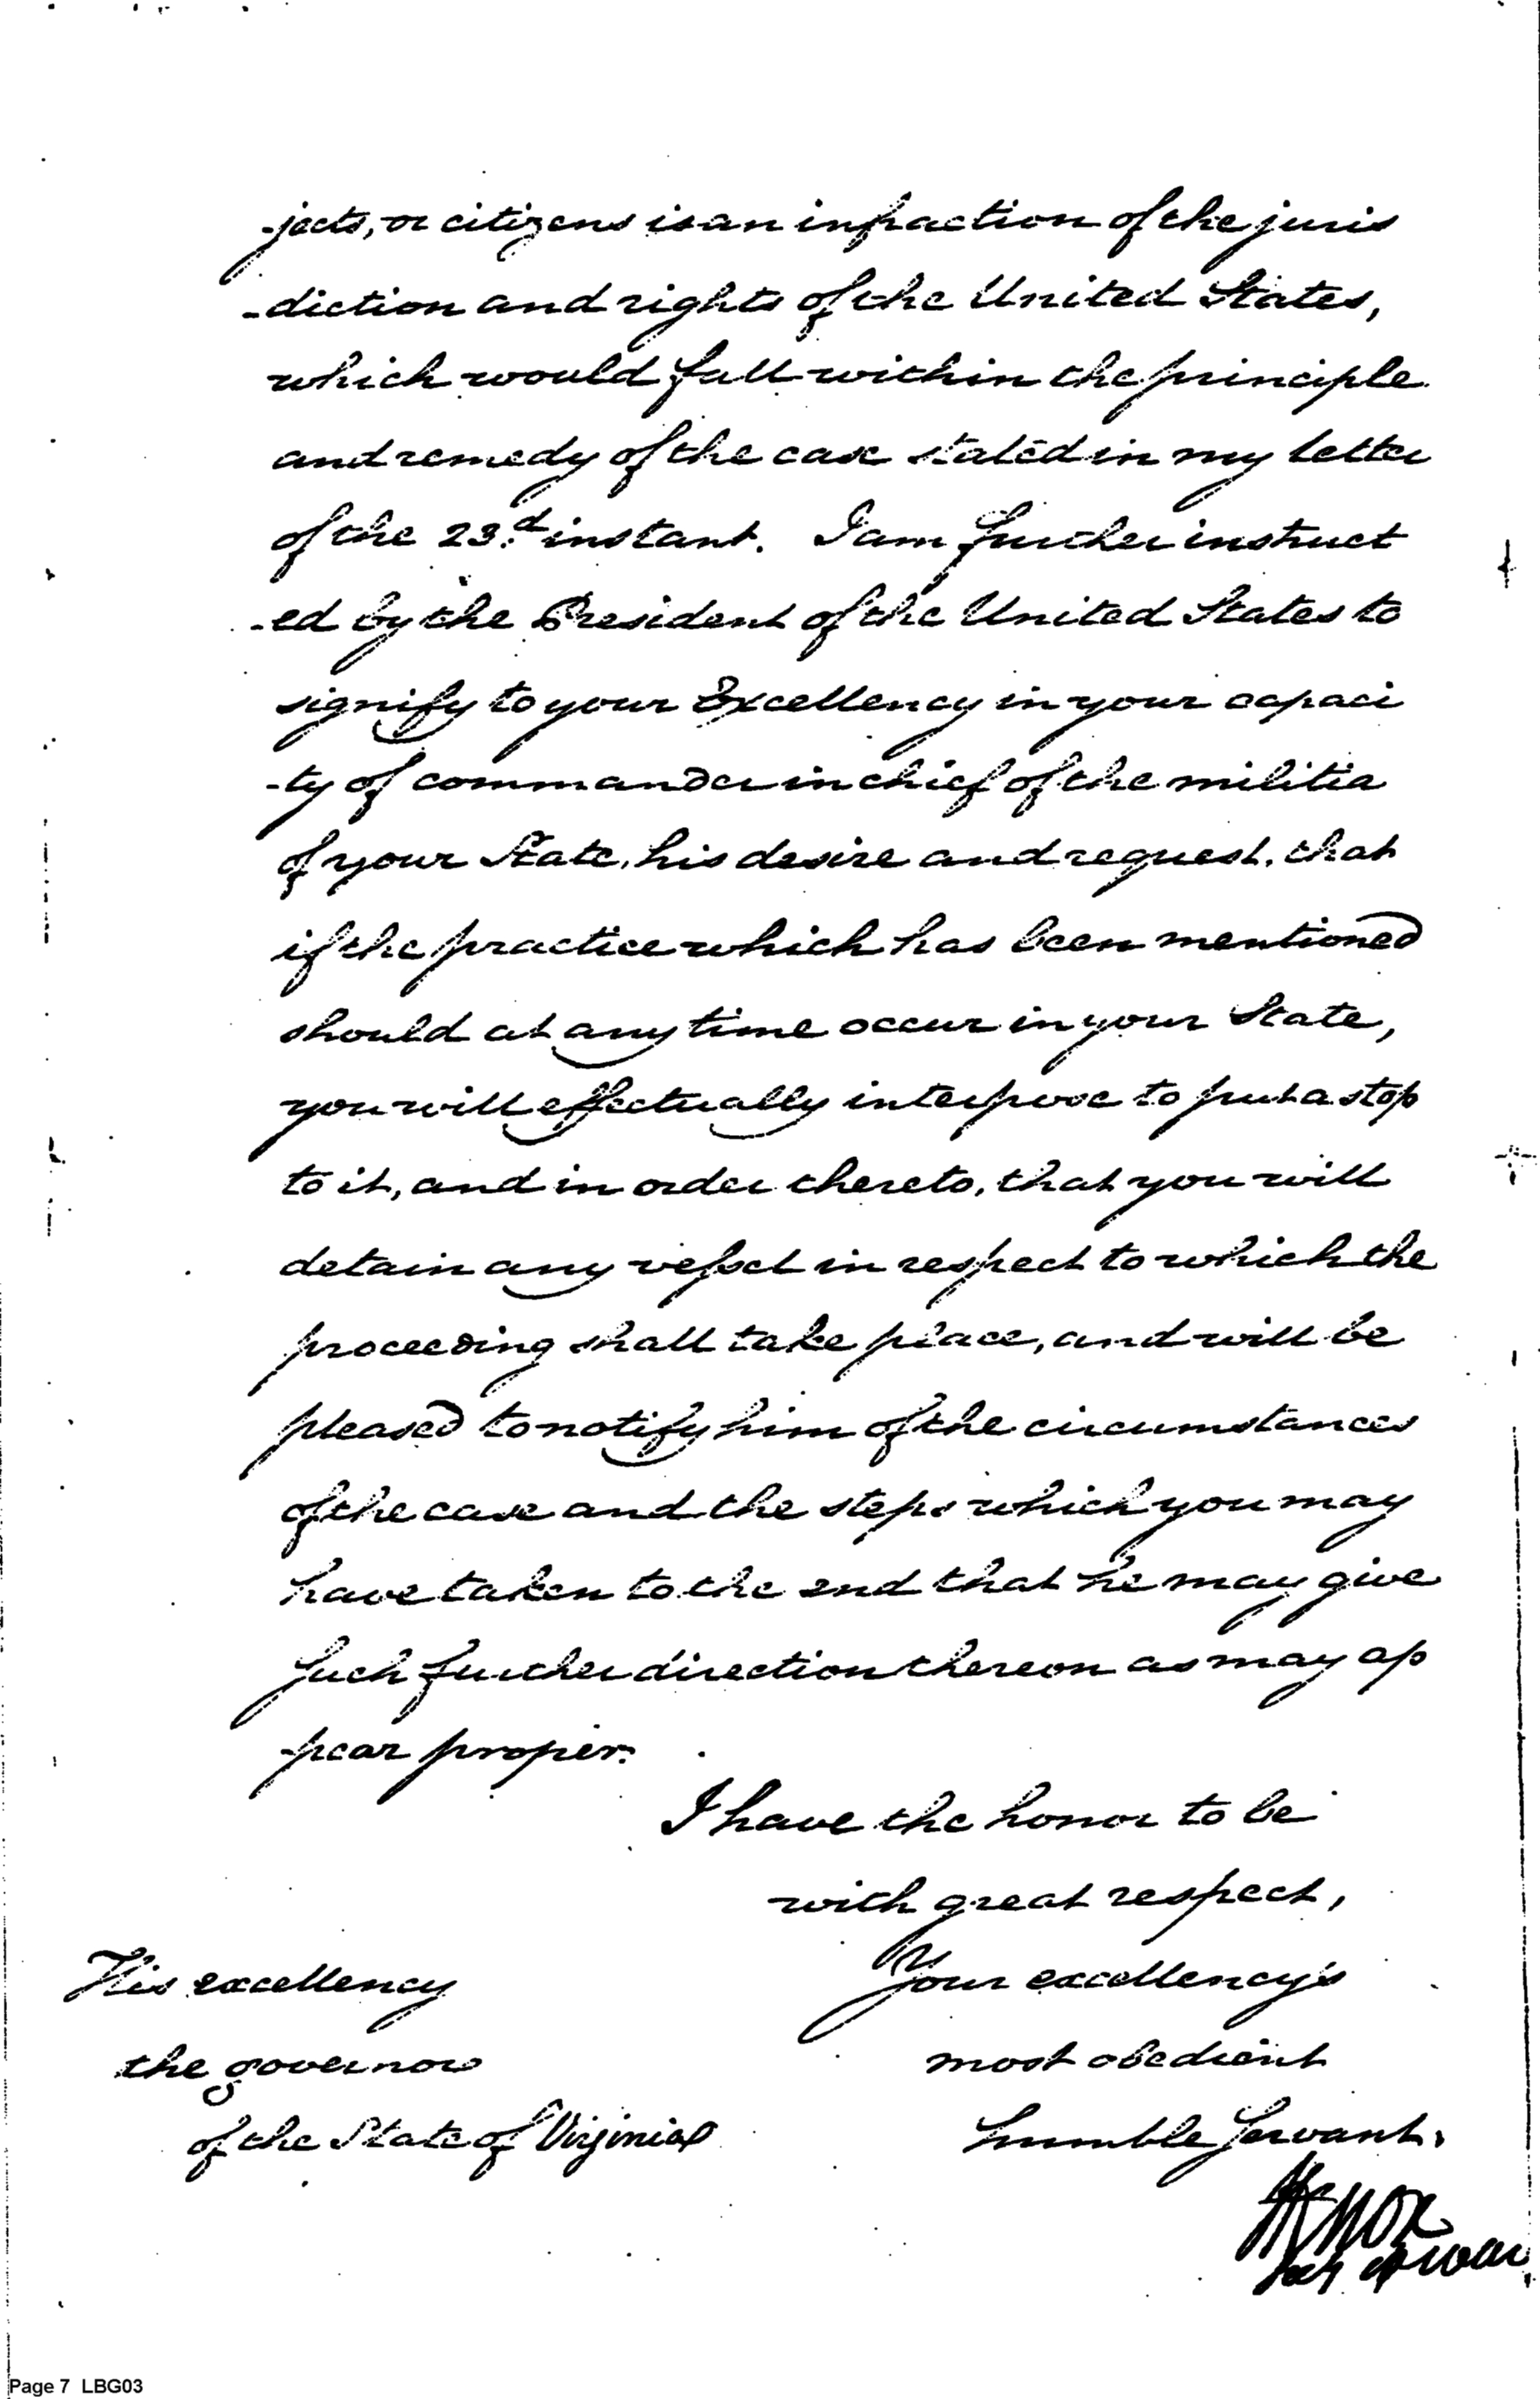 -jects, or citizens is an infraction of the juris
-diction and rights of the United States,
which would fall within the principle
and remedy of the case stated in my letter
of the 23.d instant. I am further instruct
-ed by the President of the United States to
signify to your Excellency in your capaci
-ty of commander in chief of the militia
of your State, his desire and request, that
if the practice which has been mentioned
should at any time occur in your State,
you will effectually interpose to put a stop
to it, and in order thereto, that you will
detain any vessel in respect to which the
proceeding shall take place, and will be
pleased to notify him of the circumstances
of the case and the steps which you may
have taken to the end that he may give
such further direction thereon as may ap
-pear proper.
I have the honor to be
with great respect,
Your excellency's
most obedient
humble Servant.
HKnox
Secy of War
His excellency
the governor
of the State of Virginia
Page 7 LBG03